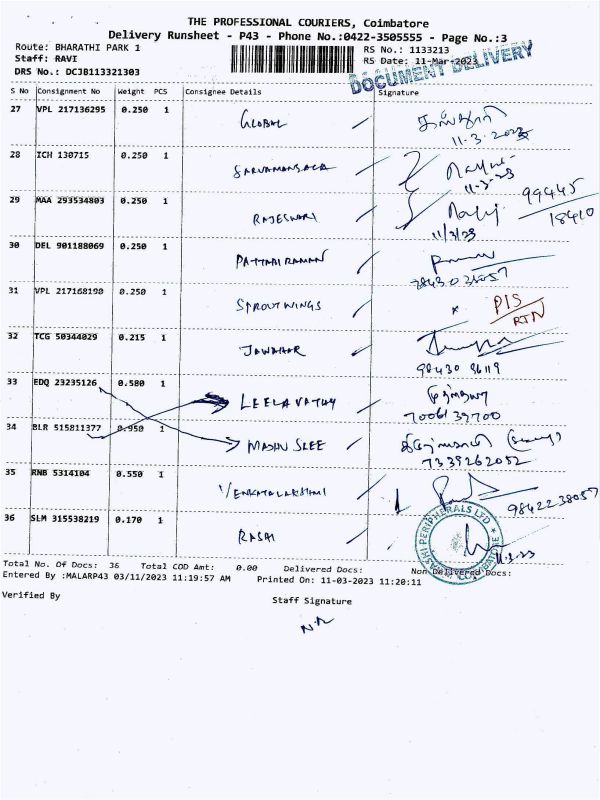 THE PROFESSIONAL COURIERS, Coimbatore
Delivery Runsheet - P43 - Phone No.:0422-3505555 - Page No.:3
Route: BHARATHI PARK 1 RS No.: 1133213
Staff: RAVI RS Date: 11-Mar-2023
DRS No.: DCJB113321303
DOCUMENT DELIVERY
S No Consignment No Weight PCS Consignee Details Signature
27 VPL 217136295 0.250 1 GLOBAL
11-3-2023
28 ICH 130715 0.250 1
11-3-23
99445
29 MAA 293534803 0.250 1 RAJESWARI
18410
11/3/23
30 DEL 901188069 0.250 1 PATTABIRAMAN
31 VPL 217168190 0.250 1 SPROUTWINGS × P/S
RTN
32 TCG 50344029 0.215 1 JAWAHAR
98430 86119
33 EDQ 23235126 0.580 1 LEELAVATHY
7006139700
34 BLR 515811377 0.950 1 MADHU SREE
7339262052
35 RNB 5314104 0.550 1 VENKATALAKSHMI
9842238057
36 SLM 315538219 0.170 1
11-3-23
Total No. Of Docs: 36 Total COD Amt: 0.00 Delivered Docs: Non Delivered Docs:
Entered By :MALARP43 03/11/2023 11:19:57 AM Printed On: 11-03-2023 11:20:11
Verified By
Staff Signature